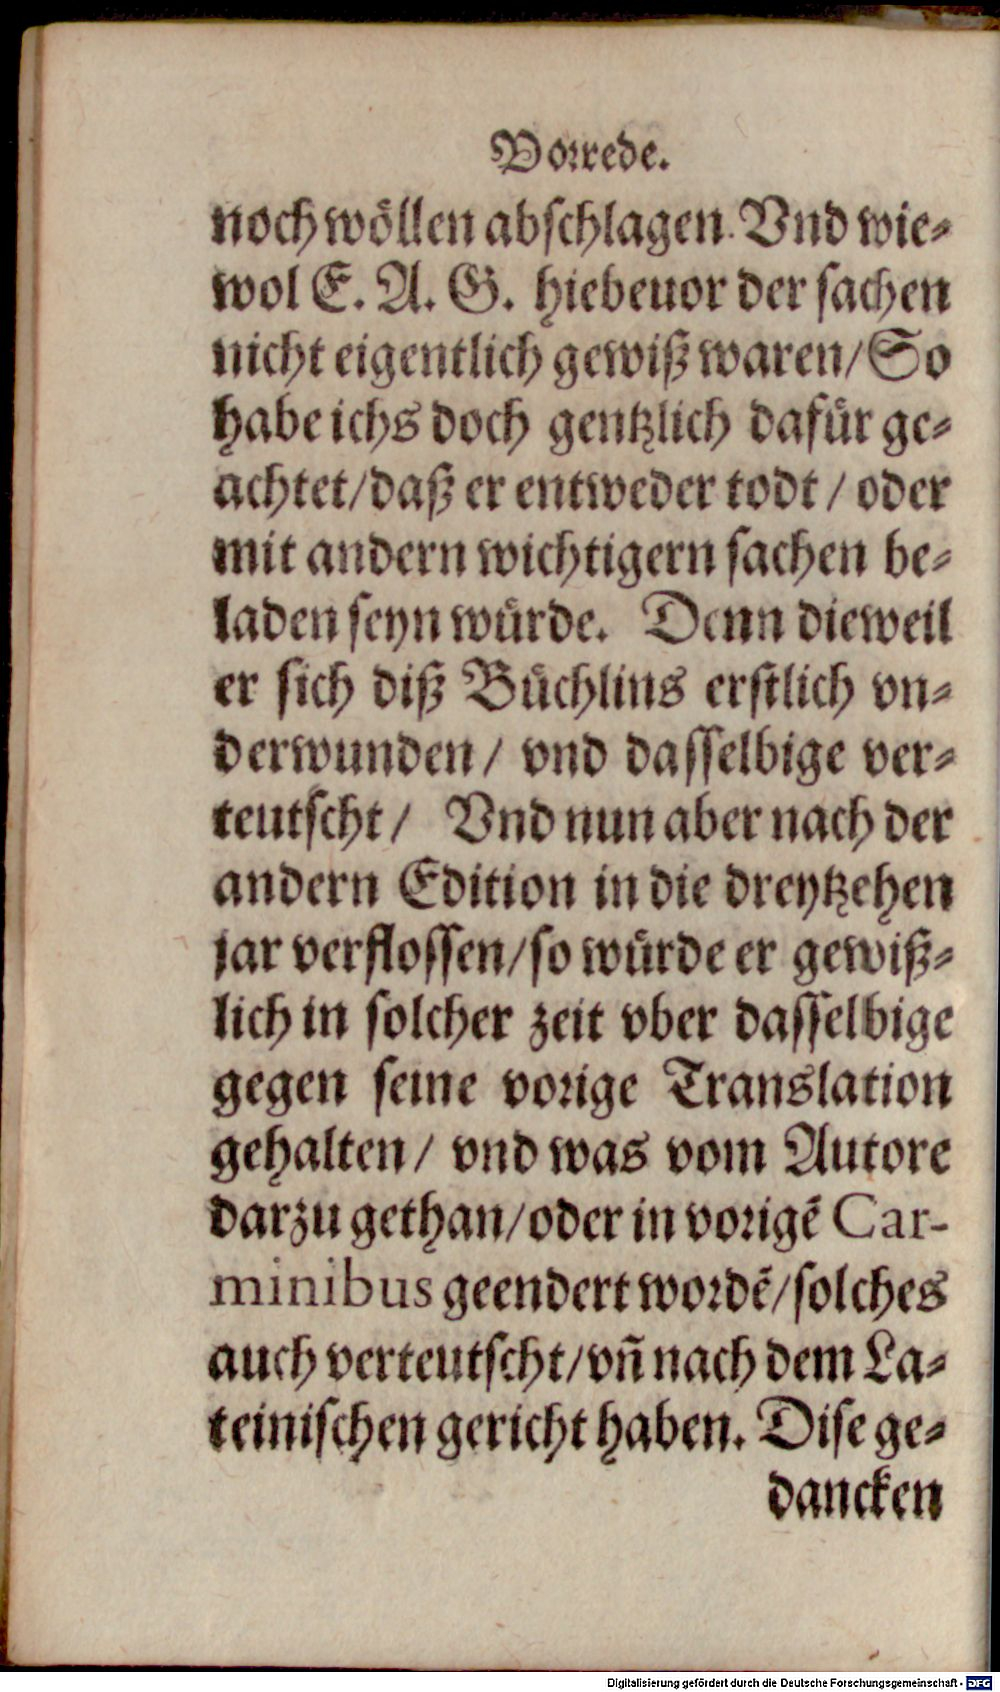 Vorrede.
noch wöllen abschlagen. Vnd wie-
wol E. A. G. hiebeuor der sachen
nicht eigentlich gewiß waren/ So
habe ichs doch gentzlich dafür ge-
achtet/ daß er entweder todt / oder
mit andern wichtigern sachen be-
laden seyn würde. Denn dieweil
er sich diß Büchlins erstlich vn-
derwunden / vnd dasselbige ver-
teutscht / Vnd nun aber nach der
andern Edition in die dreytzehen
jar verflossen/ so würde er gewiß-
lich in solcher zeit vber dasselbige
gegen seine vorige Translation
gehalten / vnd was vom Autore
darzu gethan/ oder in vorigẽ Car-
minibus geendert wordẽ/ solches
auch verteutscht/ vñ nach dem La-
teinischen gericht haben. Dise ge-
dancken
Digitalisierung gefördert durch die Deutsche Forschungsgemeinschaft - DFG